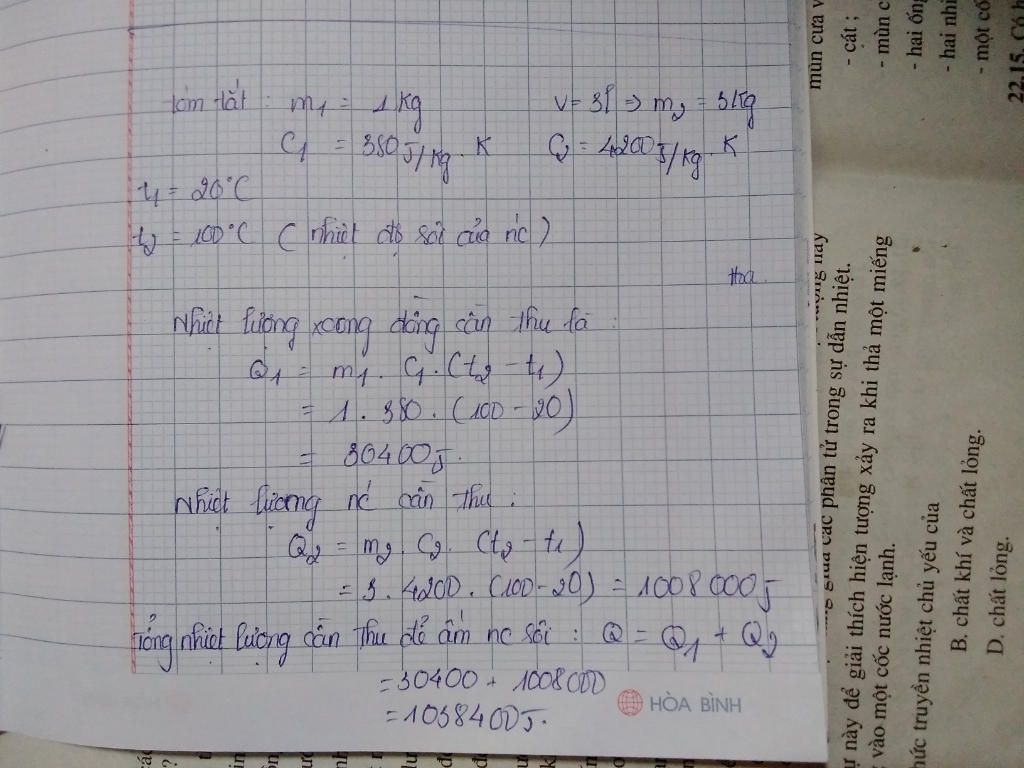 tóm tắt : m1 = 1 kg V = 3l => m2 = 3 kg
C1 = 380 J/kg . K C2 = 4200 J/kg . K
t1 = 20°C
t2 = 100°C ( nhiệt độ sôi của nc )
thu
Nhiệt lượng xoong đồng cần thu là :
Q1 = m1 . C1 . (t2 - t1)
= 1 . 380 . (100 - 20)
= 30400 J.
Nhiệt lượng nc cần thu :
Q2 = m2 . C2 . (t2 - t1)
= 3 . 4200 . (100 - 20) = 1008000 J
Tổng nhiệt lượng cần thu để ấm nc sôi : Q = Q1 + Q2
= 30400 + 1008000
= 1038400 J.
HÒA BÌNH
mùn cưa v
- cát ;
- mùn c
- hai ống
- hai nhi
- một cố
22.15. Có h
giữa các phân tử trong sự dẫn nhiệt.
ự này để giải thích hiện tượng xảy ra khi thả một miếng
vào một cốc nước lạnh.
hức truyền nhiệt chủ yếu của
B. chất khí và chất lỏng.
D. chất lỏng.